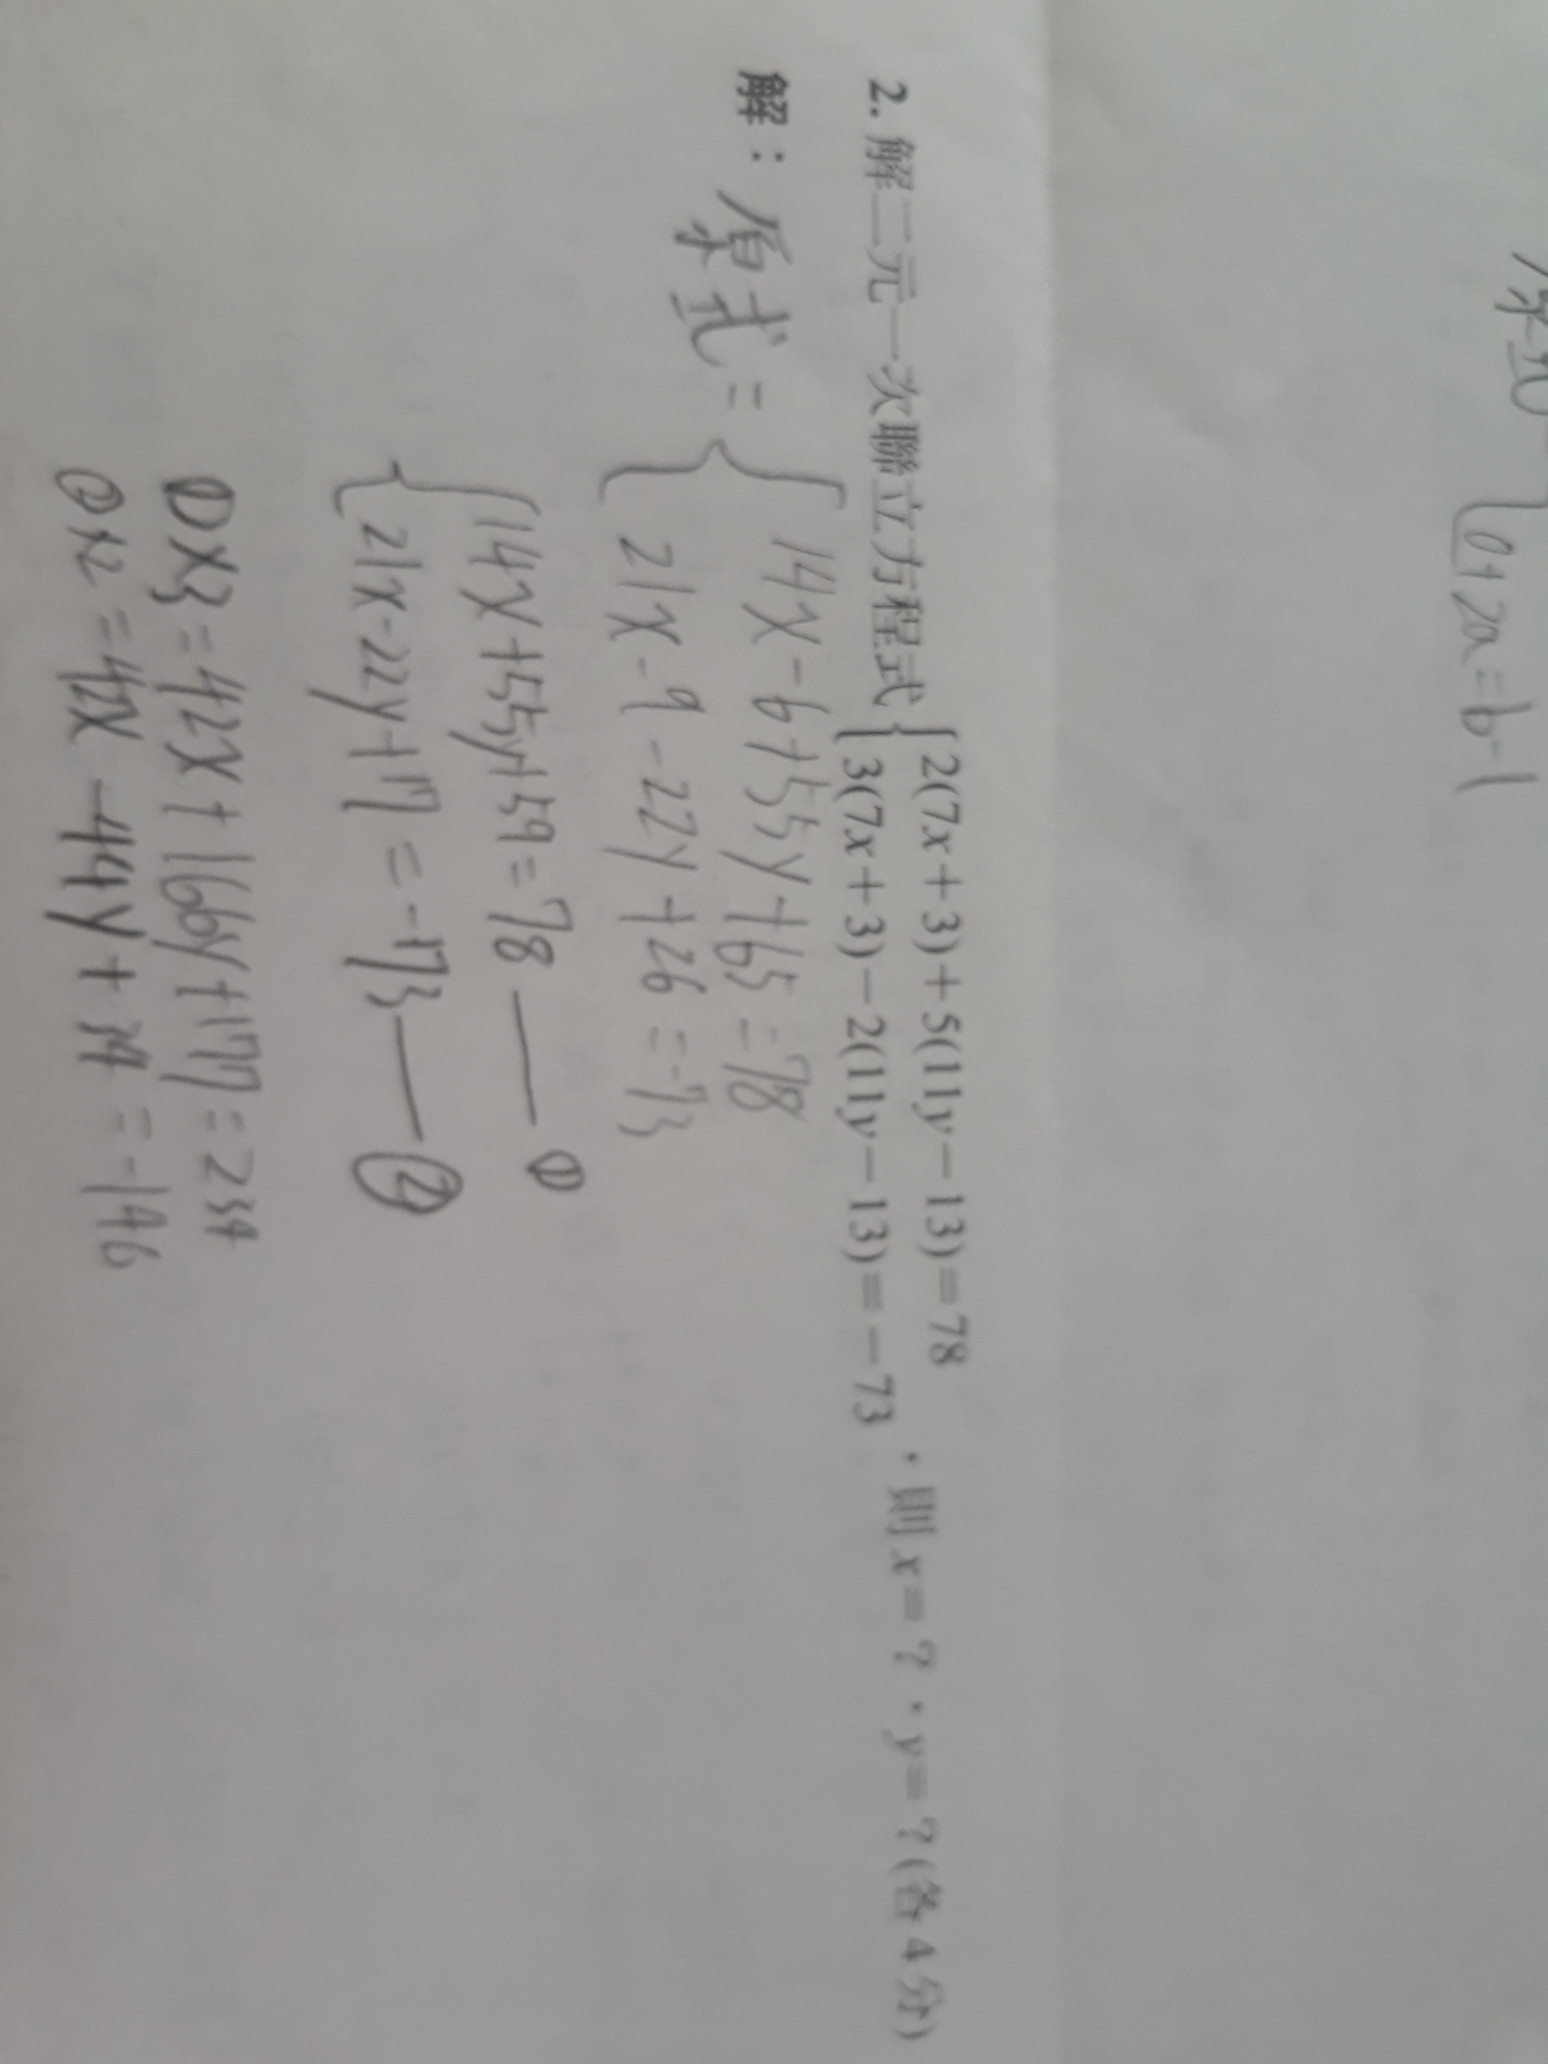 0+2a=b-1
2. 解二元一次聯立方程式{2(7x+3)+5(11y-13)=78
3(7x+3)-2(11y-13)=-73，則 x=？，y=？(各 4 分)
解：原式={14x-6+55y+65=78
21x-9-22y+26=-73
{14x+55y+59=78 —— ①
21x-22y+17=-73 —— ②
①×3=42x+166y+177=234
②×2=42x-44y+34=-146